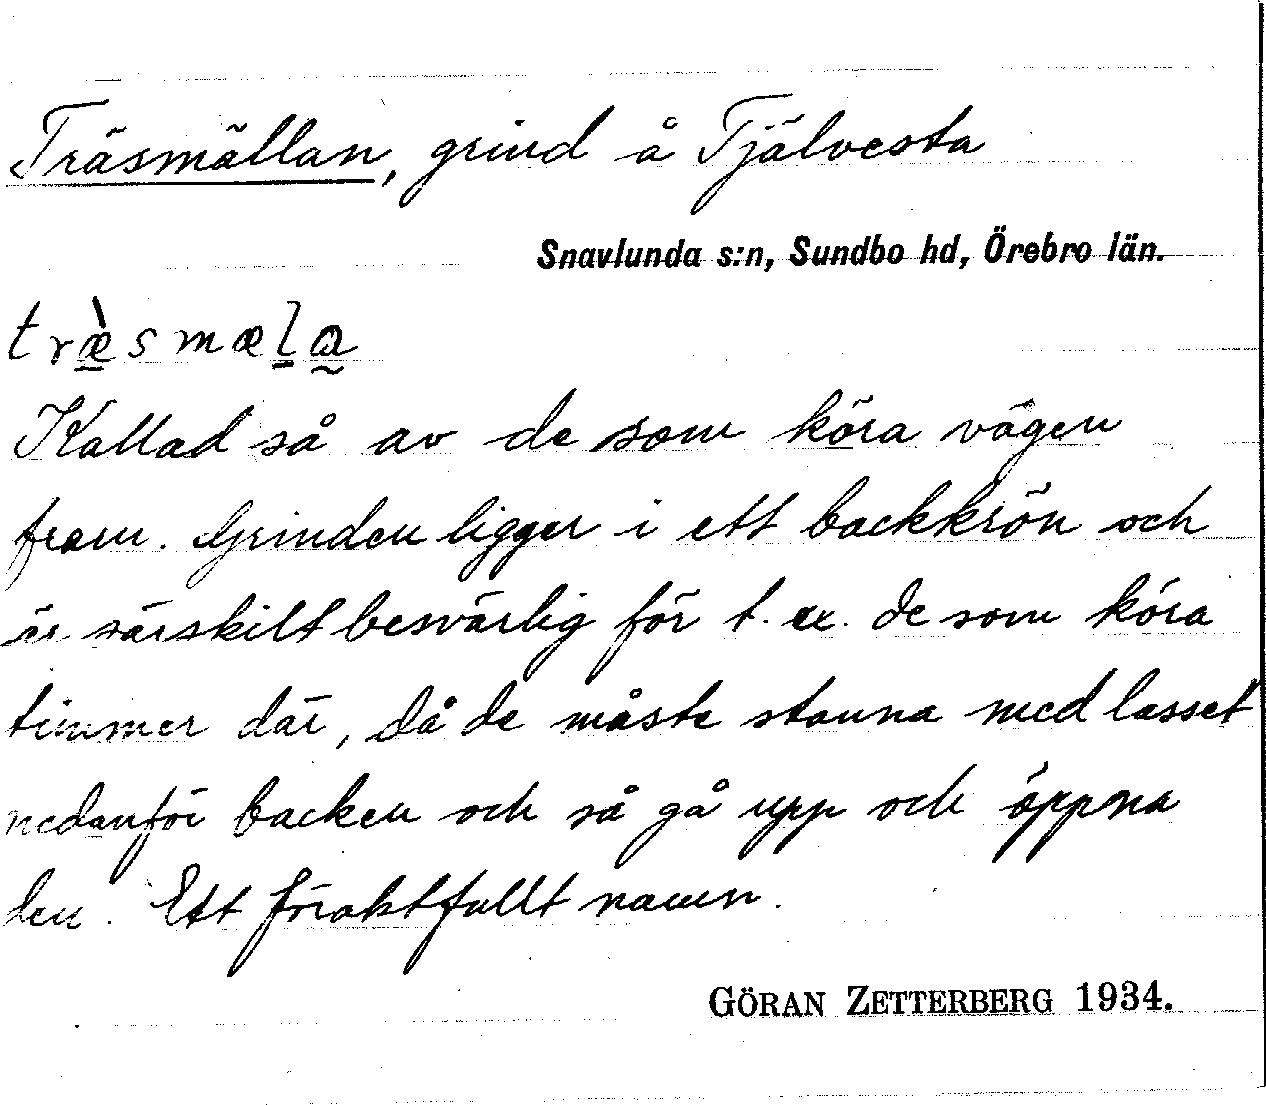 Träsmällan, grind å Tjälvesta
Snavlunda s:n, Sundbo hd, Örebro län.
træ̀smæla
Kallad så av de som köra vägen
fram. Grinden ligger i ett backkrön och
är särskilt besvärlig för t. ex. de som köra
timmer där, då de måste stanna med lasset
nedanför backen och så gå upp och öppna
den. Ett föraktfullt namn.
GÖRAN ZETTERBERG 1934.